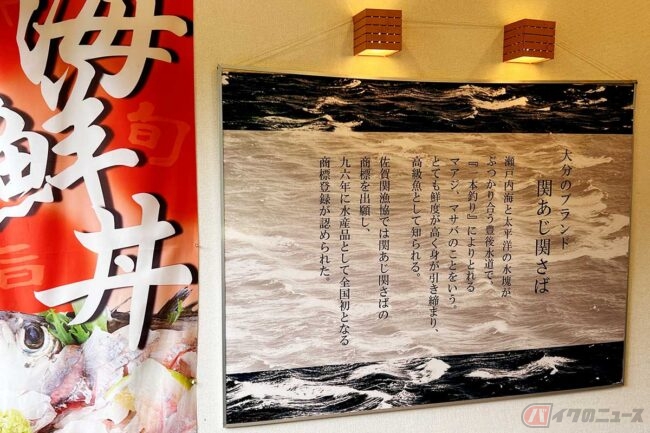 海鮮丼
旬
魚
旨
大分のブランド
関あじ関さば
瀬戸内海と太平洋の水塊が
ぶつかり合う豊後水道で、
『一本釣り』によりとれる
マアジ、マサバのことをいう。
とても鮮度が高く身が引き締まり、
高級魚として知られる。
佐賀関漁協では関あじ関さばの
商標を出願し、
九六年に水産品として全国初となる
商標登録が認められた。
バイクのニュース